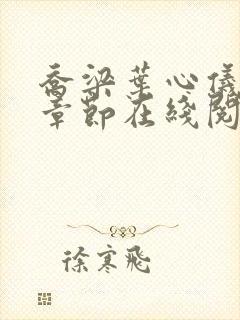 乔梁葉心儀
章節在綫閱
徐寒飛